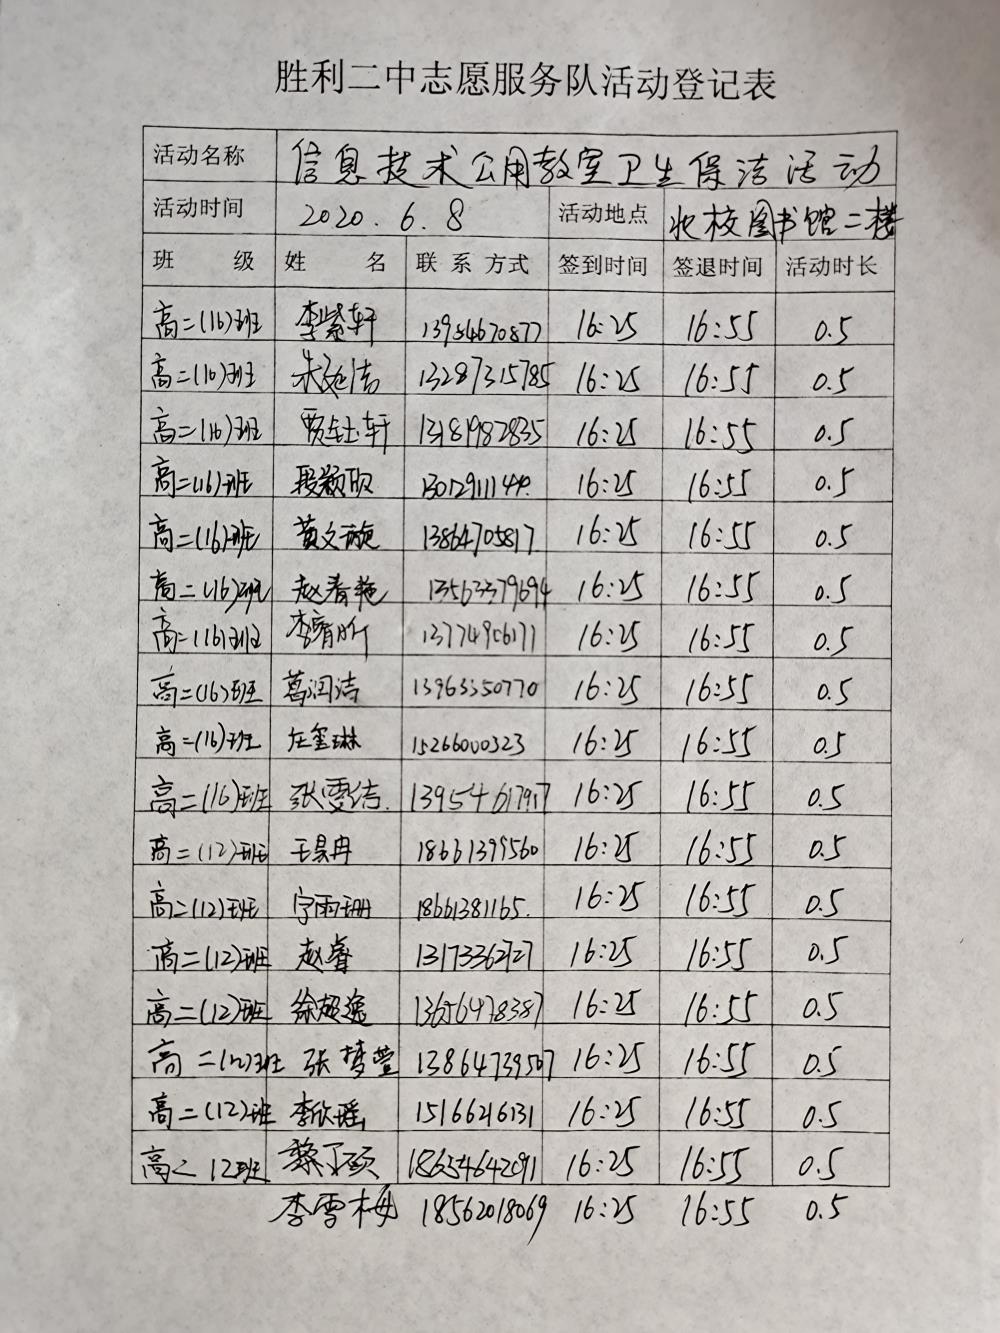 胜利二中志愿服务队活动登记表
活动名称 信息技术公用教室卫生保洁活动
活动时间 2020.6.8 活动地点 北校图书馆二楼
班 级 姓 名 联系方式 签到时间 签退时间 活动时长
高二(16)班 李紫轩 13954670877 16:25 16:55 0.5
高二(16)班 朱洁 13287315785 16:25 16:55 0.5
高二(16)班 贾钰轩 13181982835 16:25 16:55 0.5
高二(16)班 段颖 16:25 16:55 0.5
高二(16)班 黄文璇 13864705817 16:25 16:55 0.5
高二(16)班 赵春艳 13563379694 16:25 16:55 0.5
高二(16)班 李 16:25 16:55 0.5
高二(16)班 葛润洁 13963350770 16:25 16:55 0.5
高二(16)班 左玺琳 15266000323 16:25 16:55 0.5
高二(16)班 张雯结 16:25 16:55 0.5
高二(12)班 王昊冉 18661399560 16:25 16:55 0.5
高二(12)班 宁雨珊 18661381165. 16:25 16:55 0.5
高二(12)班 赵睿 13173362727 16:25 16:55 0.5
高二(12)班 徐超逸 13656478387 16:25 16:55 0.5
高二(12)班 张梦萱 13864739507 16:25 16:55 0.5
高二(12)班 李欣瑶 15166216131 16:25 16:55 0.5
高二 12班 黎丁硕 18654642091 16:25 16:55 0.5
李雪梅 18562018069 16:25 16:55 0.5